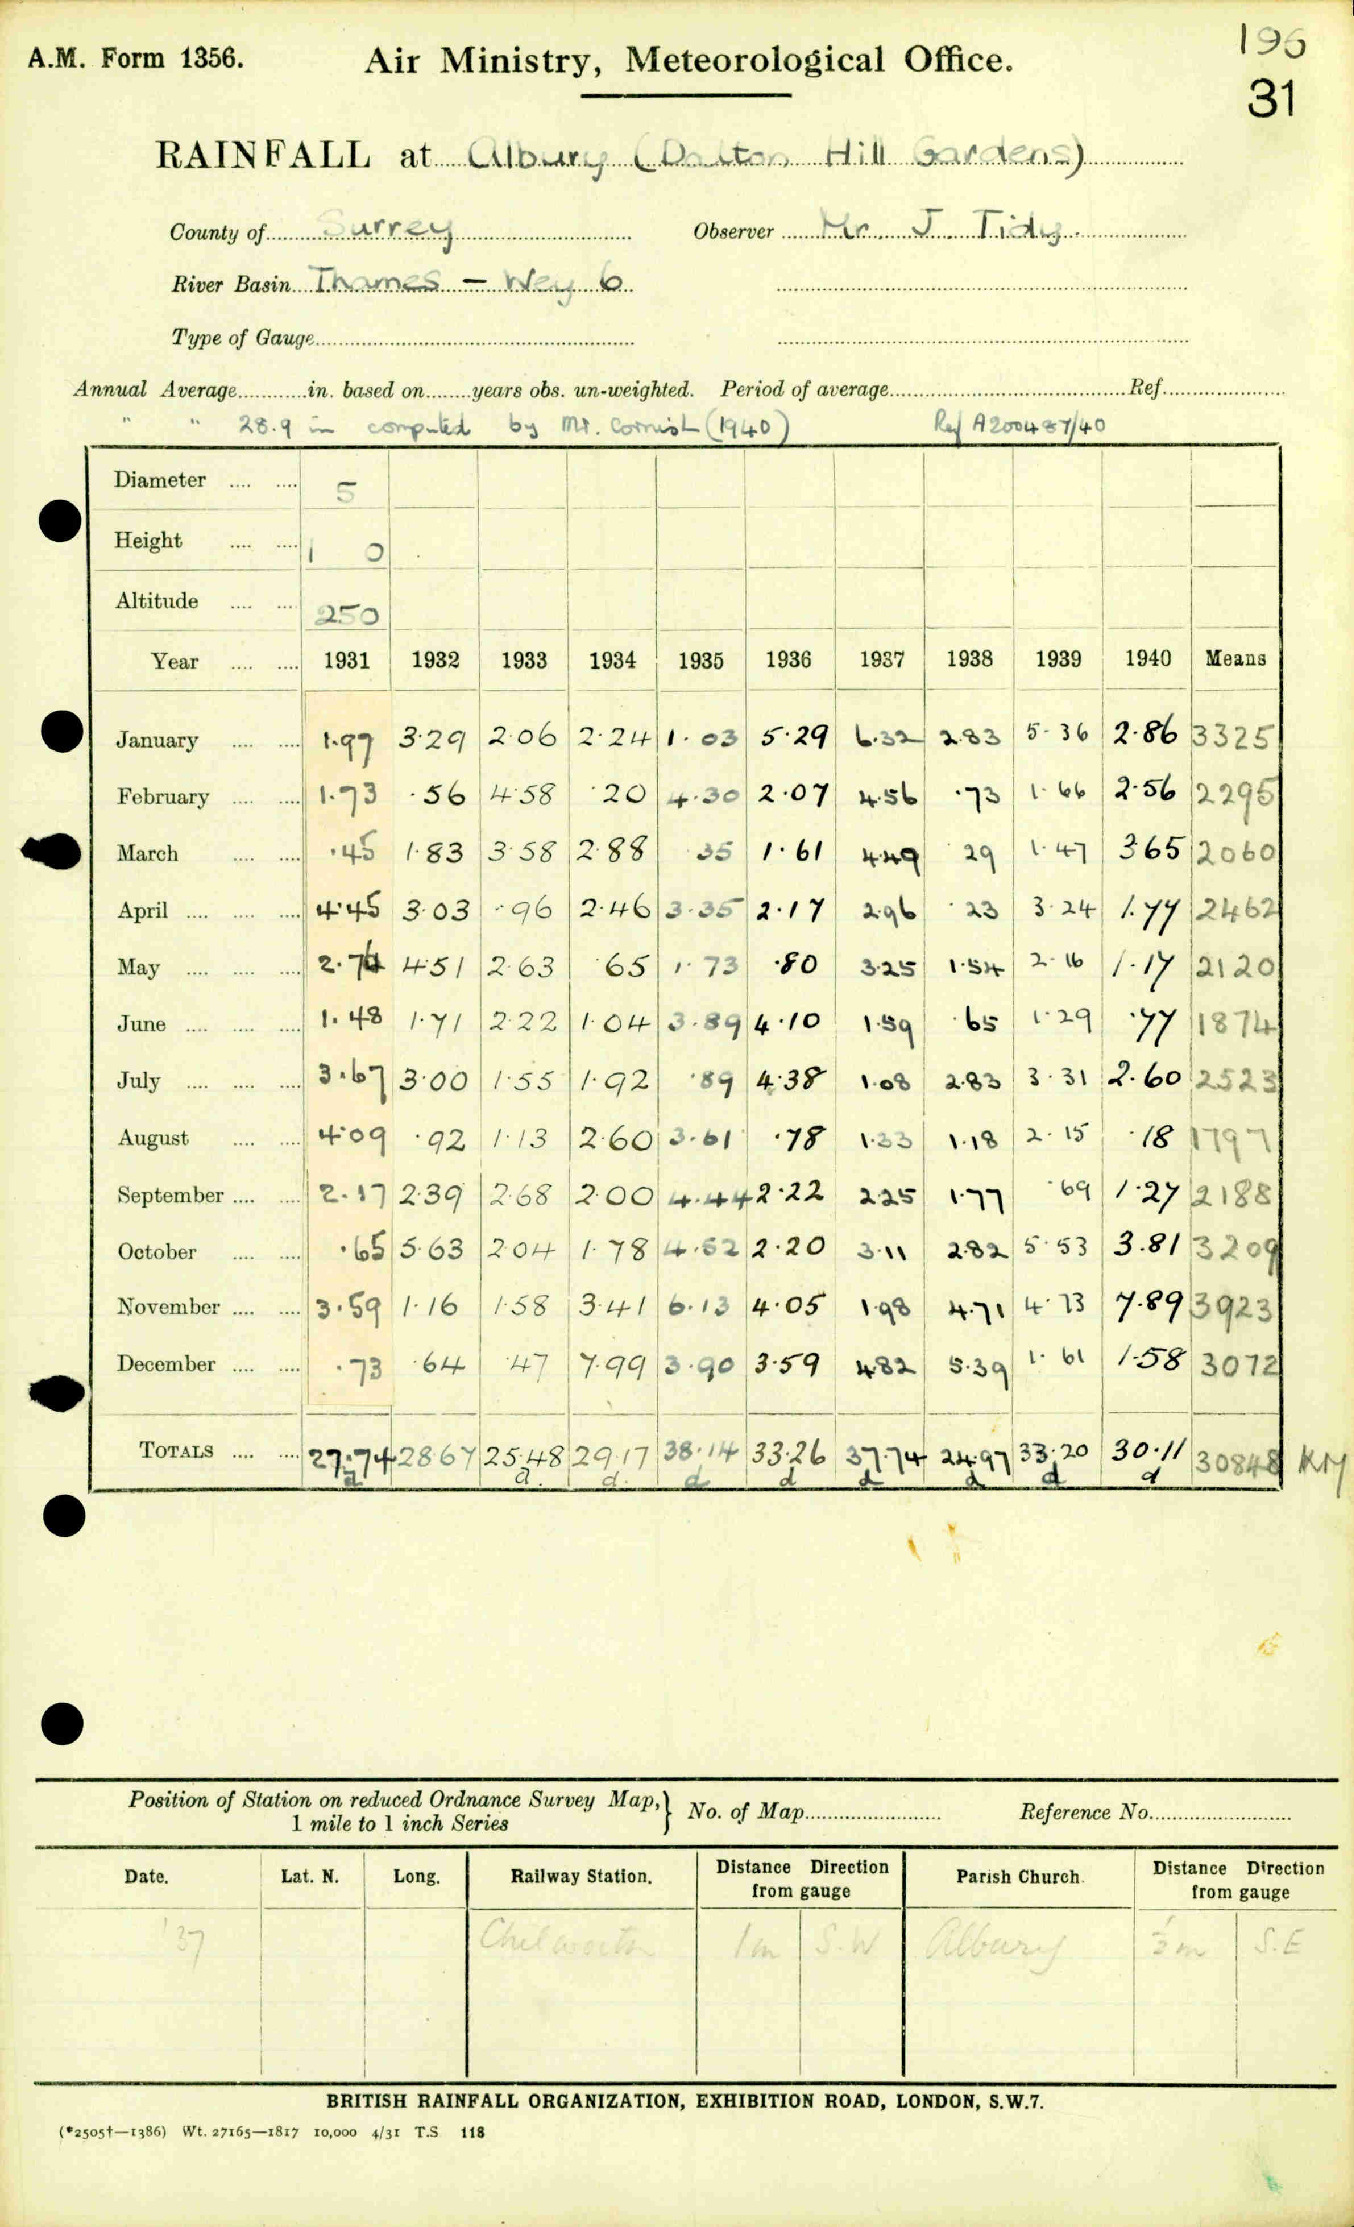 A.M. Form 1356.
Air Ministry, Meteorological Office.
196
31
RAINFALL at Albury (Dalton Hill Gardens)
County of Surrey Observer Mr. J. Tidy.
River Basin Thames – Wey 6
Type of Gauge
Annual Average in. based on years obs. un-weighted. Period of average Ref.
" " 28.9 in computed by Mr. Cornish (1940) Ref A200487/40
Diameter 5
Height 1 0
Altitude 250
Year 1931 1932 1933 1934 1935 1936 1937 1938 1939 1940 Means
January 1.97 3.29 2.06 2.24 1.03 5.29 6.32 2.83 5.36 2.86 3325
February 1.73 .56 4.58 .20 4.30 2.07 4.56 .73 1.66 2.56 2295
March .45 1.83 3.58 2.88 .35 1.61 4.49 .29 1.47 3.65 2060
April 4.45 3.03 .96 2.46 3.35 2.17 2.96 .23 3.24 1.77 2462
May 2.76 4.51 2.63 .65 1.73 .80 3.25 1.54 2.16 1.17 2120
June 1.48 1.71 2.22 1.04 3.89 4.10 1.59 .65 1.29 .77 1874
July 3.67 3.00 1.55 1.92 .89 4.38 1.08 2.83 3.31 2.60 2523
August 4.09 .92 1.13 2.60 3.61 .78 1.33 1.18 2.15 .18 1797
September 2.17 2.39 2.68 2.00 4.44 2.22 2.25 1.77 .69 1.27 2188
October .65 5.63 2.04 1.78 4.52 2.20 3.11 2.82 5.53 3.81 3209
November 3.59 1.16 1.58 3.41 6.13 4.05 1.98 4.71 4.73 7.89 3923
December .73 .64 .47 7.99 3.90 3.59 4.82 5.39 1.61 1.58 3072
TOTALS 27.74 28.67 25.48 29.17 38.14 33.26 37.74 24.97 33.20 30.11 30848 KM
d d d d d d d d d
Position of Station on reduced Ordnance Survey Map, } No. of Map Reference No.
1 mile to 1 inch Series
Date. Lat. N. Long. Railway Station. Distance Direction from gauge Parish Church. Distance Direction from gauge
'37 Chilworth 1m S.W Albury ½m S.E
BRITISH RAINFALL ORGANIZATION, EXHIBITION ROAD, LONDON, S.W.7.
(*2505†—1386) Wt. 27165—1817 10,000 4/31 T.S. 118